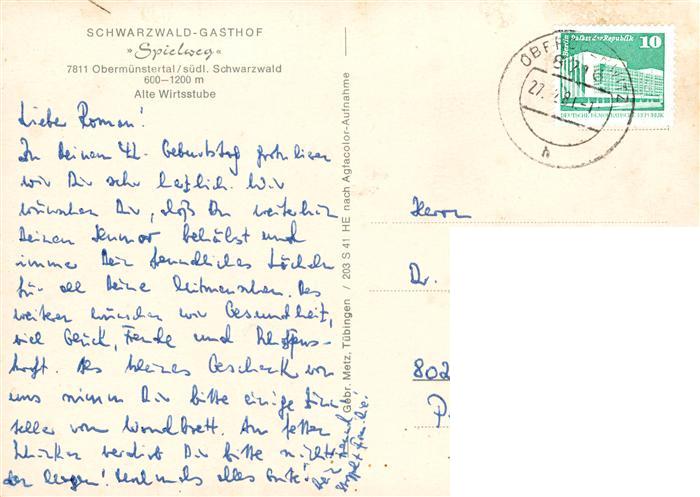 SCHWARZWALD-GASTHOF
»Spielweg«
7811 Obermünstertal/südl. Schwarzwald
600–1200 m
Alte Wirtsstube
Lieber Roman!
Zu Deinem 42. Geburtstag gratulieren
wir Dir sehr herzlich. Wir
wünschen Dir, daß Du weiterhin
Deinen Humor behälst und
immer Dein freundliches Lächeln
für all Deine Mitmenschen. Des
weiteren wünschen wir Gesundheit,
viel Glück, Freude und Schaffens-
kraft. Als kleines Geschenk von
uns nimm Dir bitte einige
teller vom Wandbrett. Am fetten
Schinken verdirb Dir bitte nicht
den Magen! Und nochs alles Gute!
Gebr. Metz, Tübingen / 203 S 41 HE nach Agfacolor-Aufnahme
Berlin Palast der Republik
10
DEUTSCHE DEMOKRATISCHE REPUBLIK
h
Herrn
Dr.
802